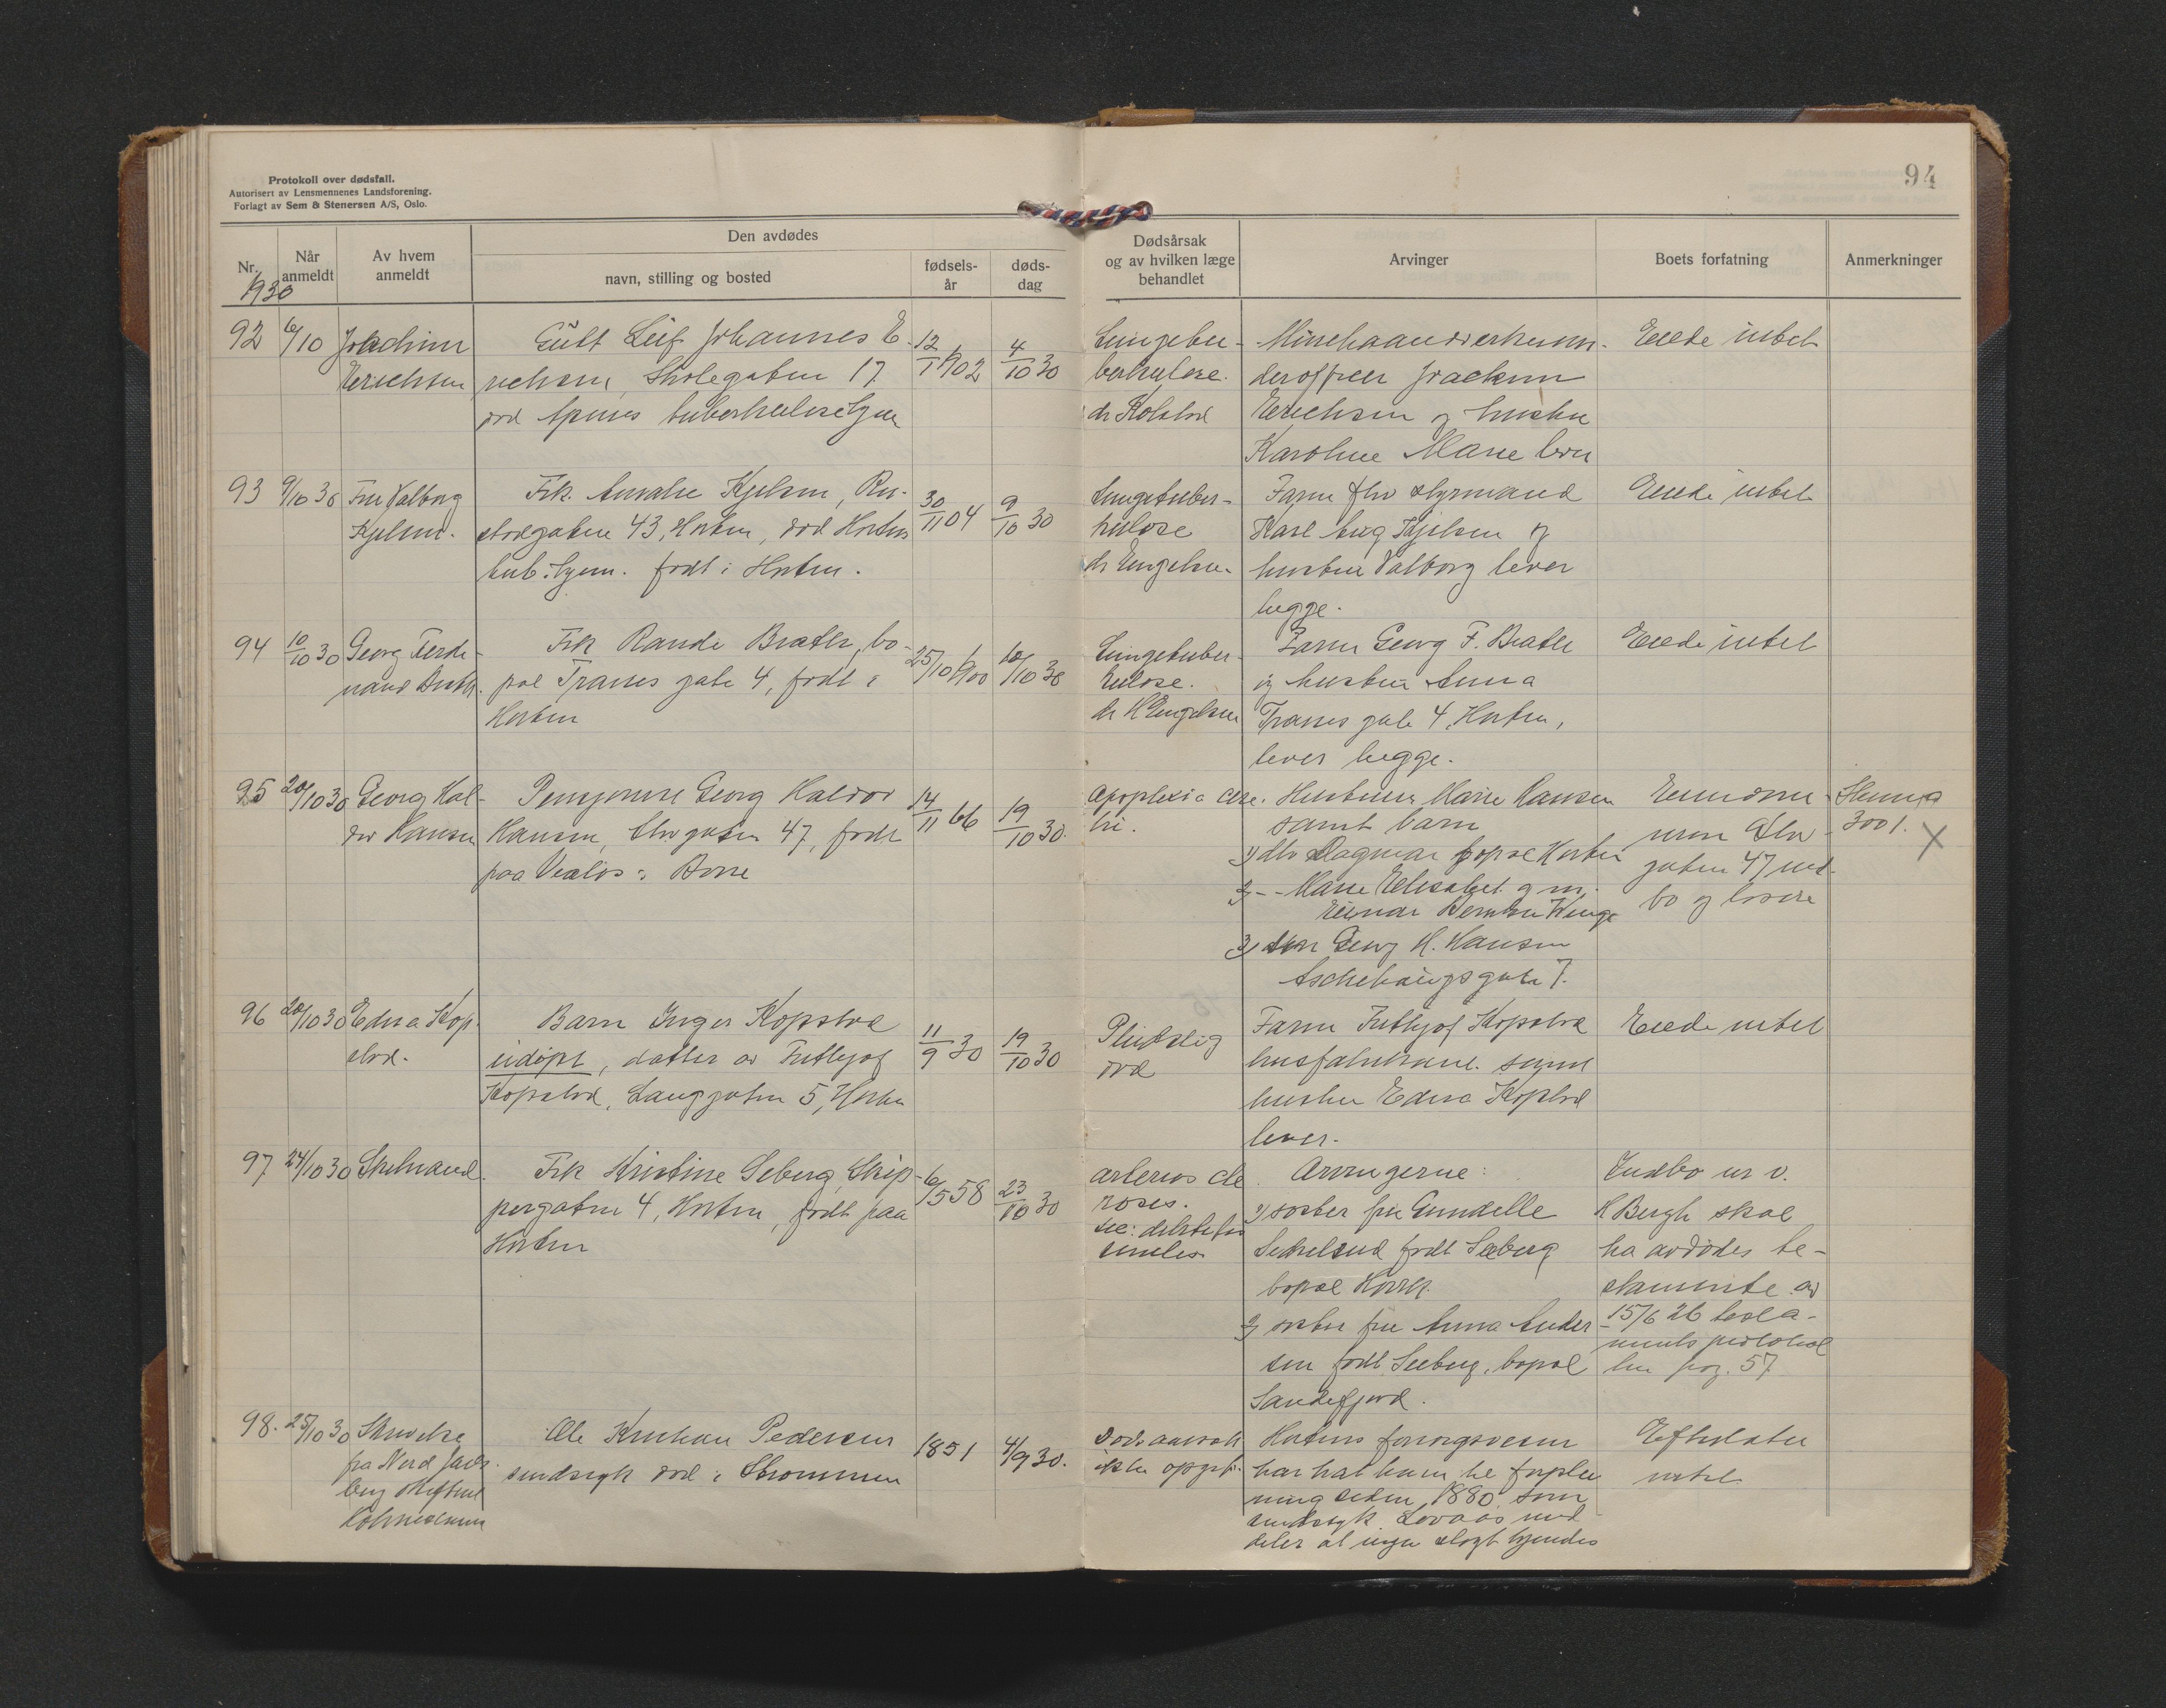 Protokoll over dødsfall.
Autorisert av Lensmennenes Landsforening.
Forlagt av Sem & Stenersen A/S, Oslo.
94
Nr.
1930
Når anmeldt
Av hvem anmeldt
Den avdødes
navn, stilling og bosted
fødselsår
dødsdag
Dødsårsak
og av hvilken læge
behandlet
Arvinger
Boets forfatning
Anmerkninger
92 6/10 Joachim
Erichsen
Gült Leif Johannes E-
richsen, Skolegaten 17
død tuberkulosehjem
12/1 1902
4/10 30
Lungetu-
berkulose.
dr Kolstad
Joachim
Erichsen og hustru
Karoline Marie lever
Eiede intet
93 9/10 30 Fru Valborg
Kjelsen.
Frk. Amalie Kjelsen, Ru-
stadgaten 43, Horten, død Hortens
tub.hjem. født i Horten.
30/11 04
9/10 30
Lungetuber-
kulose
dr Engelsen
Faren fhv styrmand
Karl Aug Kjelsen og
hustru Valborg lever
begge.
Eiede intet
94 10/10 30 Georg Ferdi-
nand Bratli.
Frk Randi Bratli, bo-
pæl Tranes gate 4, født i
Horten
25/10 1900
10/10 30
Lungetuber-
kulose.
dr H Engelsen
Faren Georg F. Bratli
og hustru Anna
Tranes gate 4, Horten,
lever begge.
Eiede intet
95 20/10 30 Georg Hal-
dor Hansen
Pensjonere Georg Haldor
Hansen, gaten 47, født
paa Vealøs i Borre
14/11 66
19/10 30.
Apoplexia cere-
bri.
Hustruen Marie Hansen
samt barn
1) dtr Dagmar bopæl Horten
2) -- Marie Elisabet g m.
Einar Berntsen
3) søn Georg H. Hansen
Aschehougsgate 7.
Eiendommen
gaten 47 ind-
bo og løsøre
3001.
X
96 20/10 30 Edna Kop-
stad.
Barn Inger Kopstad
udøpt, datter av Fritjof
Kopstad, Langgaten 5, Horten
11/9 30
19/10 30
Plutselig
død
Faren Fritjof Kopstad
samt
hustru Edna Kopstad
lever.
Eiede intet
97 24/10 30
Frk Kristine Seberg, Skip-
pergaten 4, Horten, født paa
Horten
6/5 58
23/10 30
arterioscle
roses.
Arvingerne:
1) søster fru Gundelle
født Seeberg
bopæl
2) søster fru Anna Ander-
sen født Seeberg, bopæl
Sandefjord.
Indbo
H Bergh skal
ha avdødes te-
stamente av
15/6 26 testa-
ments protokol
len pag. 57
98. 25/10 30 Skrivelse
fra Nord
Ole Kristian Pedersen
sindssyk død i Strømmen
1851
4/9 30.
Dødsaarsak
ikke opgit.
Hortens forsorgsvesen
har hat ham til forplei
ning siden 1880 som
sindssyk med-
deler at ingen slegt kjendes
Efterlater
intet